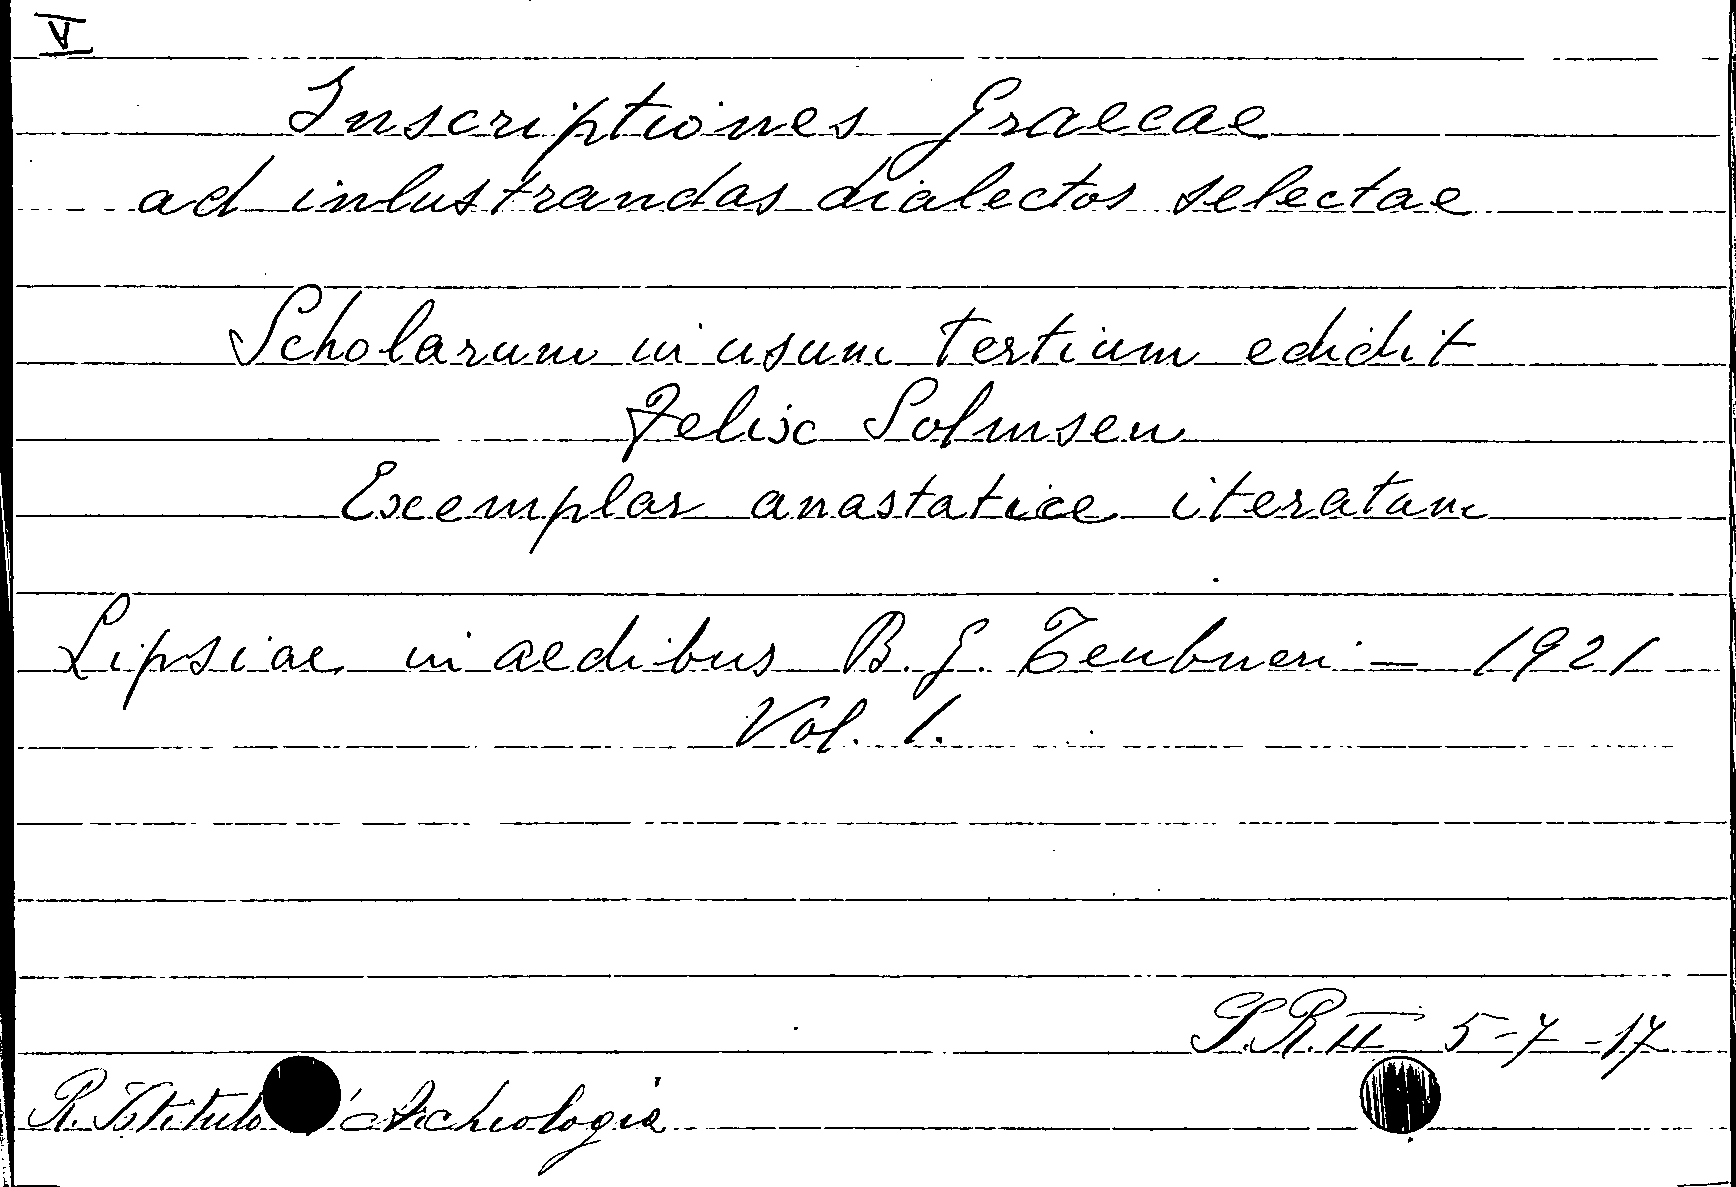 V
Inscriptiones Graecae
ad inlustrandas dialectos selectae
Scholarum in usum tertium edidit
Felix Solmsen
Exemplar anastatice iteratum
Lipsiae in aedibus B. G. Teubneri - 1921
Vol. 1.
S.R. II 5-7-17
R. Istituto d'Archeologia